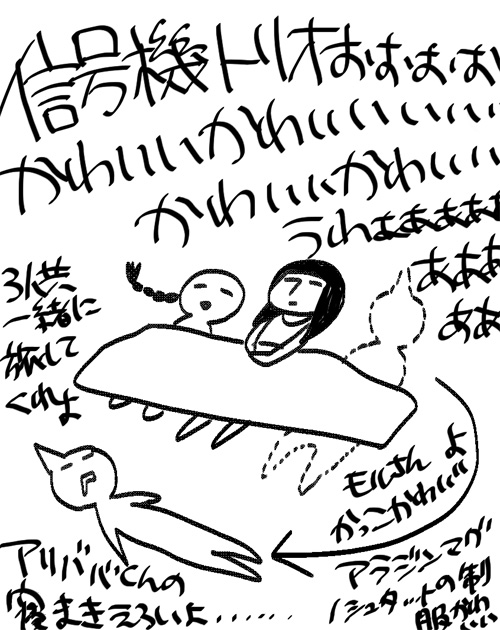 信号機トリオおおおお
かわいいかわいいいいい
かわいいかわいいい
うわぁあああああ
あああ
ああ
3人共
一緒に
旅して
くれよ
モルさん よ
かっこかわいい
アリババくんの
寝まきえろいよ・・・・・・
アラジンマグ
ノシュタットの制
服かわ
いい